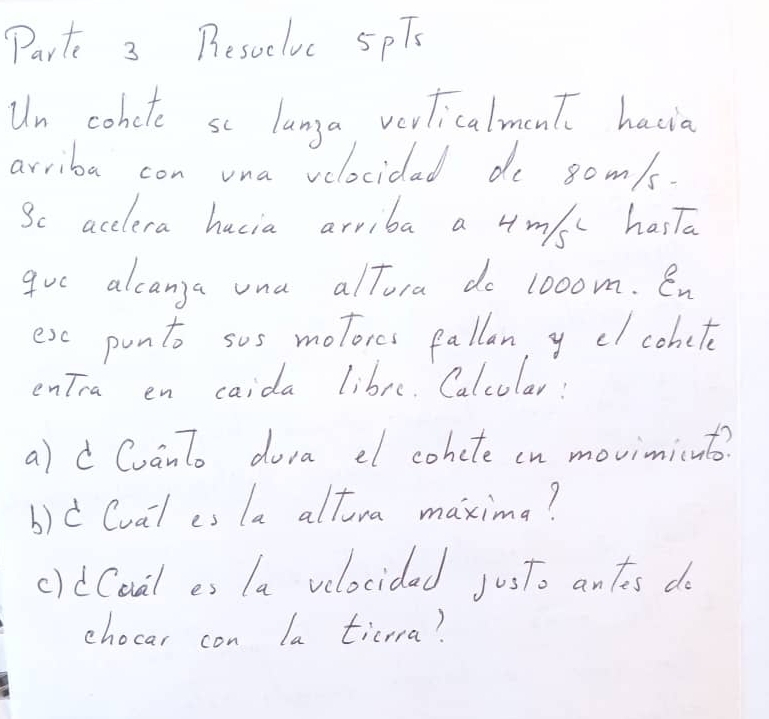 Parte 3 Resuelve 5pts
Un cohete se lanza verticalmente hacia
arriba con una velocidad de 80m/s.
Se acelera hacia arriba a 4m/s² hasta
que alcanza una altura de 1000m. En
ese punto sus motores fallan y el cohete
entra en caida libre. Calcular:
a) ¿Cuánto dura el cohete en movimiento?
b) ¿Cuál es la altura máxima?
c) ¿Cuál es la velocidad justo antes de
chocar con la tierra?